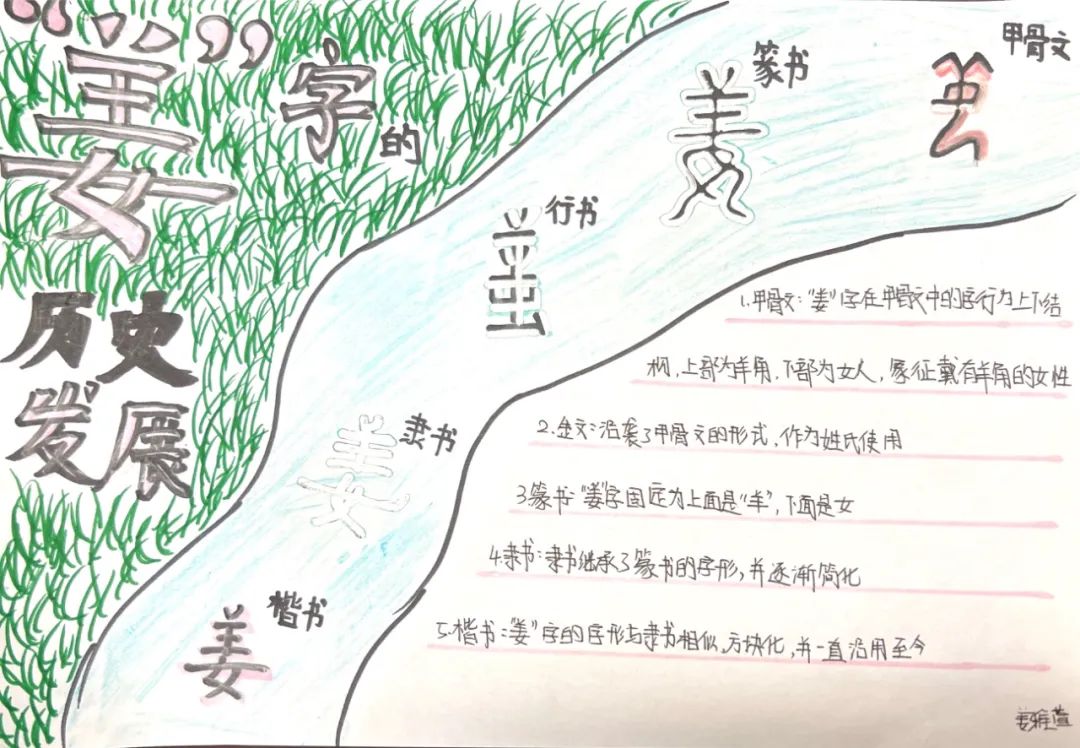 “姜”字的
历史
发展
甲骨文
篆书
行书
隶书
楷书
姜
姜
姜
1.甲骨文：“姜”字在甲骨文中的字行为上下结
构，上部为羊角，下部为女人，象征戴有羊角的女性
2.金文：沿袭了甲骨文的形式，作为姓氏使用
3.篆书：“姜”字固定为上面是“羊”，下面是女
4.隶书：隶书继承了篆书的字形，并逐渐简化
5.楷书：“姜”字的字形与隶书相似，方块化，并一直沿用至今
姜雅萱